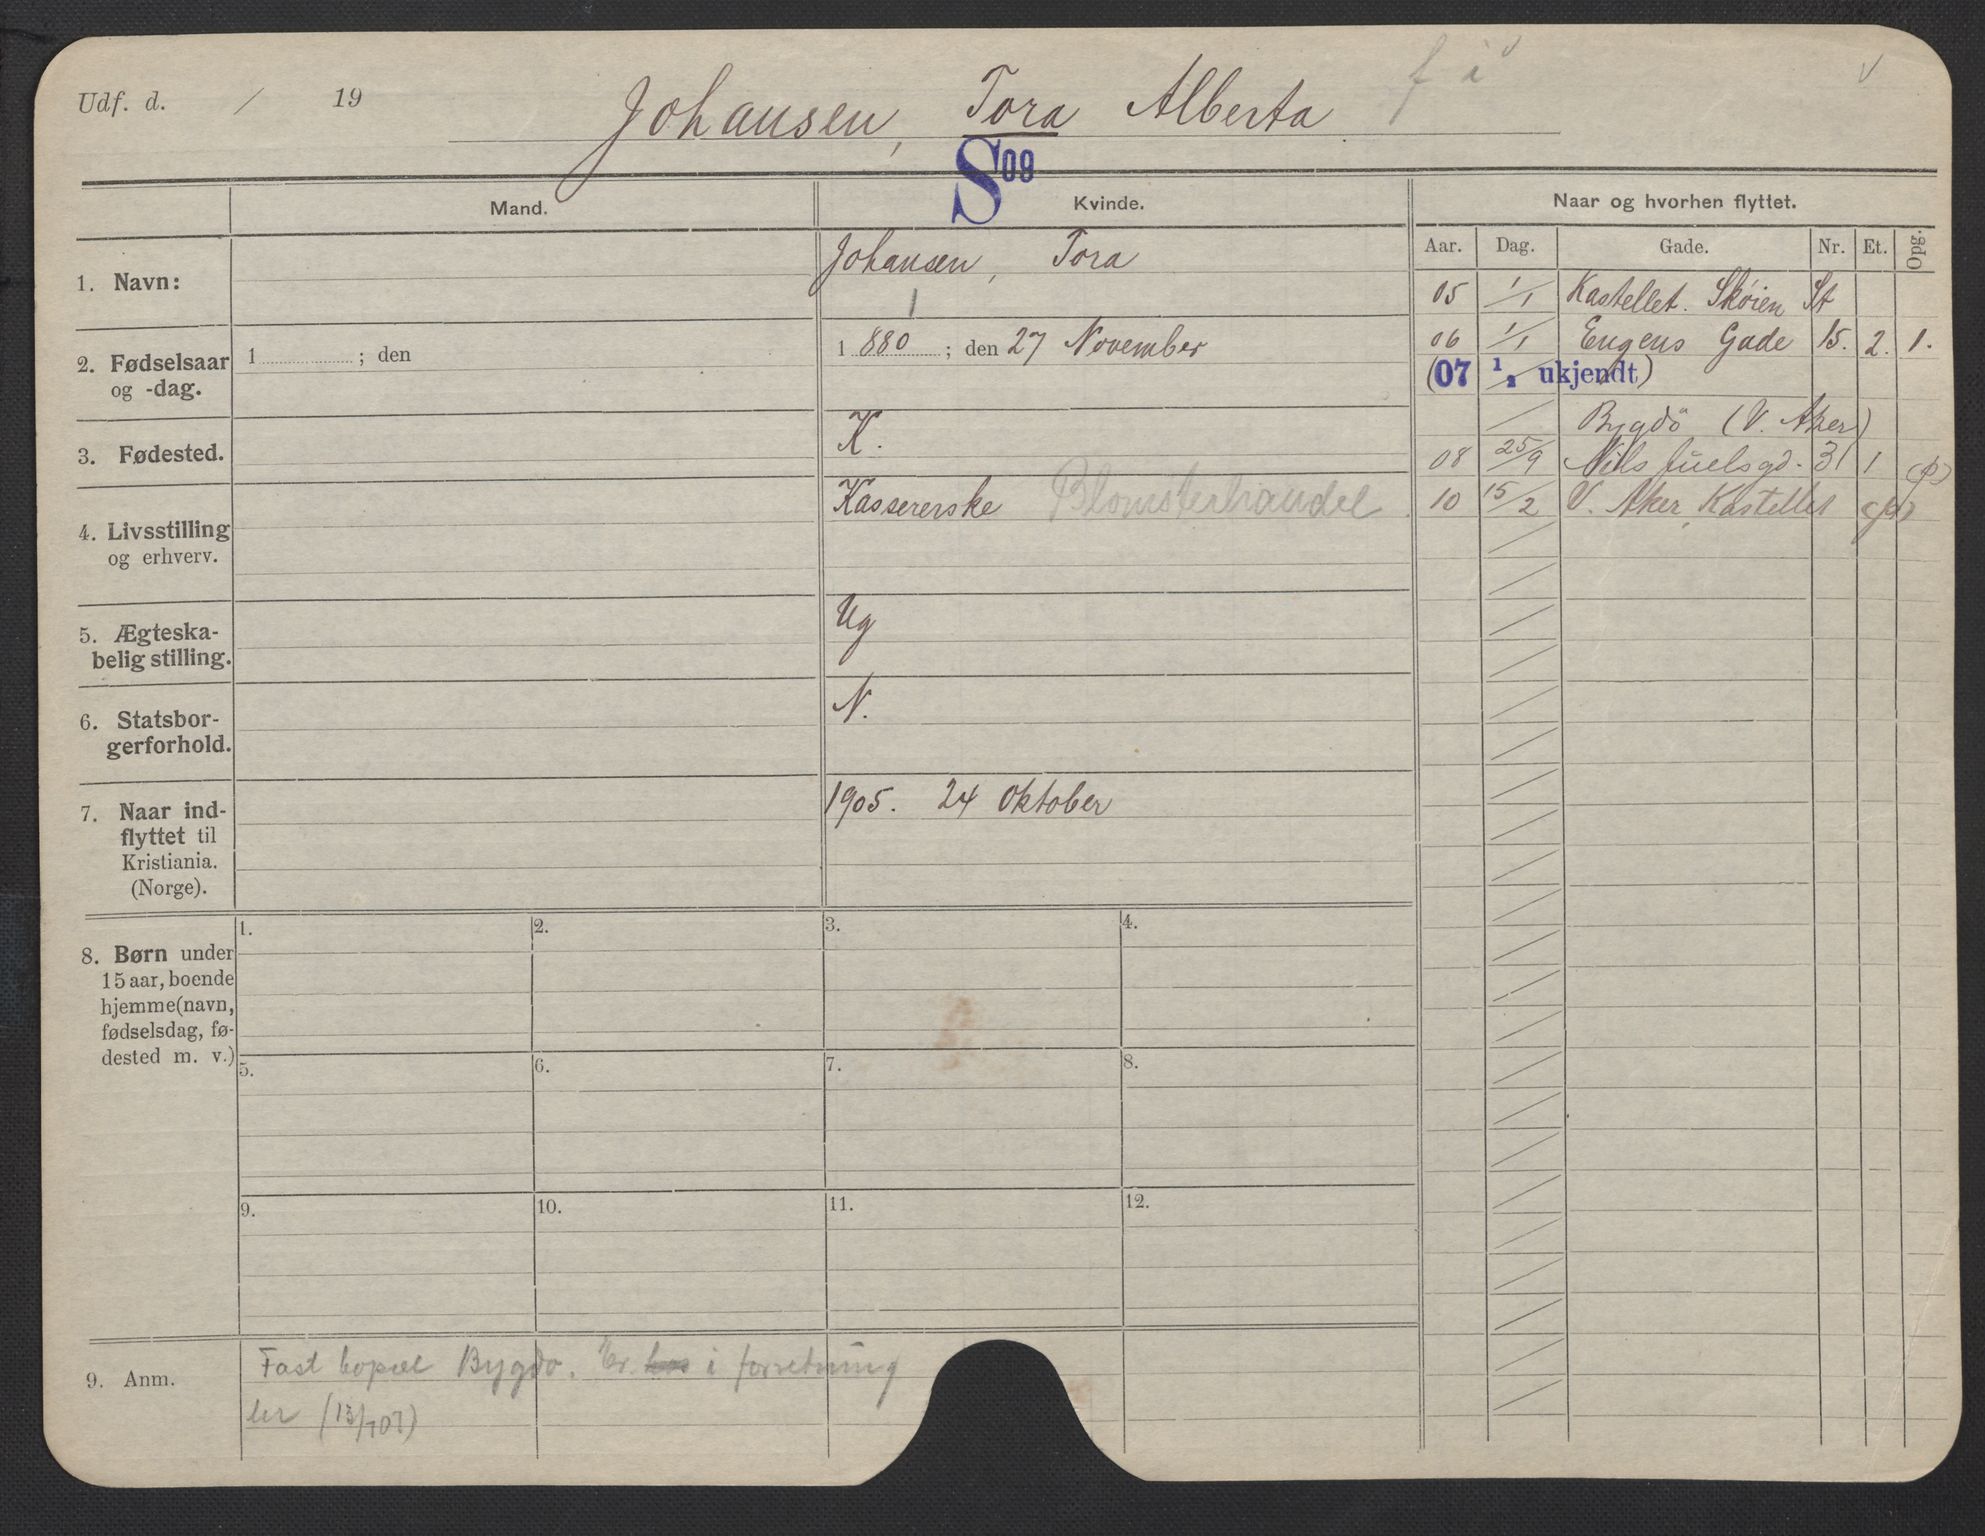 Udf. d. / 19
Johansen, Tora Alberta f i
S 09
Mand. Kvinde. Naar og hvorhen flyttet.
Aar. Dag. Gade. Nr. Et. Opg.
1. Navn: Johansen, Tora
05 1/1 Kastellet. Skøien St
2. Fødselsaar og -dag. 1 ; den
1 880 ; den 27 November
06 1/1 Eugens Gade 15. 2. 1.
(07 1/2 ukjendt)
Bygdö (V. Aker)
3. Fødested. K.
08 25/9 Nils Juelsgd. 31 1 (p)
4. Livsstilling og erhverv. Kassererske Blomsterhandel
10 15/2 V. Aker, Kastellet
5. Ægteska-
belig stilling. Ug
6. Statsbor-
gerforhold. N.
7. Naar ind-
flyttet til
Kristiania.
(Norge). 1905. 24 Oktober
8. Børn under
15 aar, boende
hjemme (navn,
fødselsdag, fø-
dested m. v.)
1. 2. 3. 4.
5. 6. 7. 8.
9. 10. 11. 12.
9. Anm. Fast bopæl Bygdö. Er i forretning
her (13/7 07)